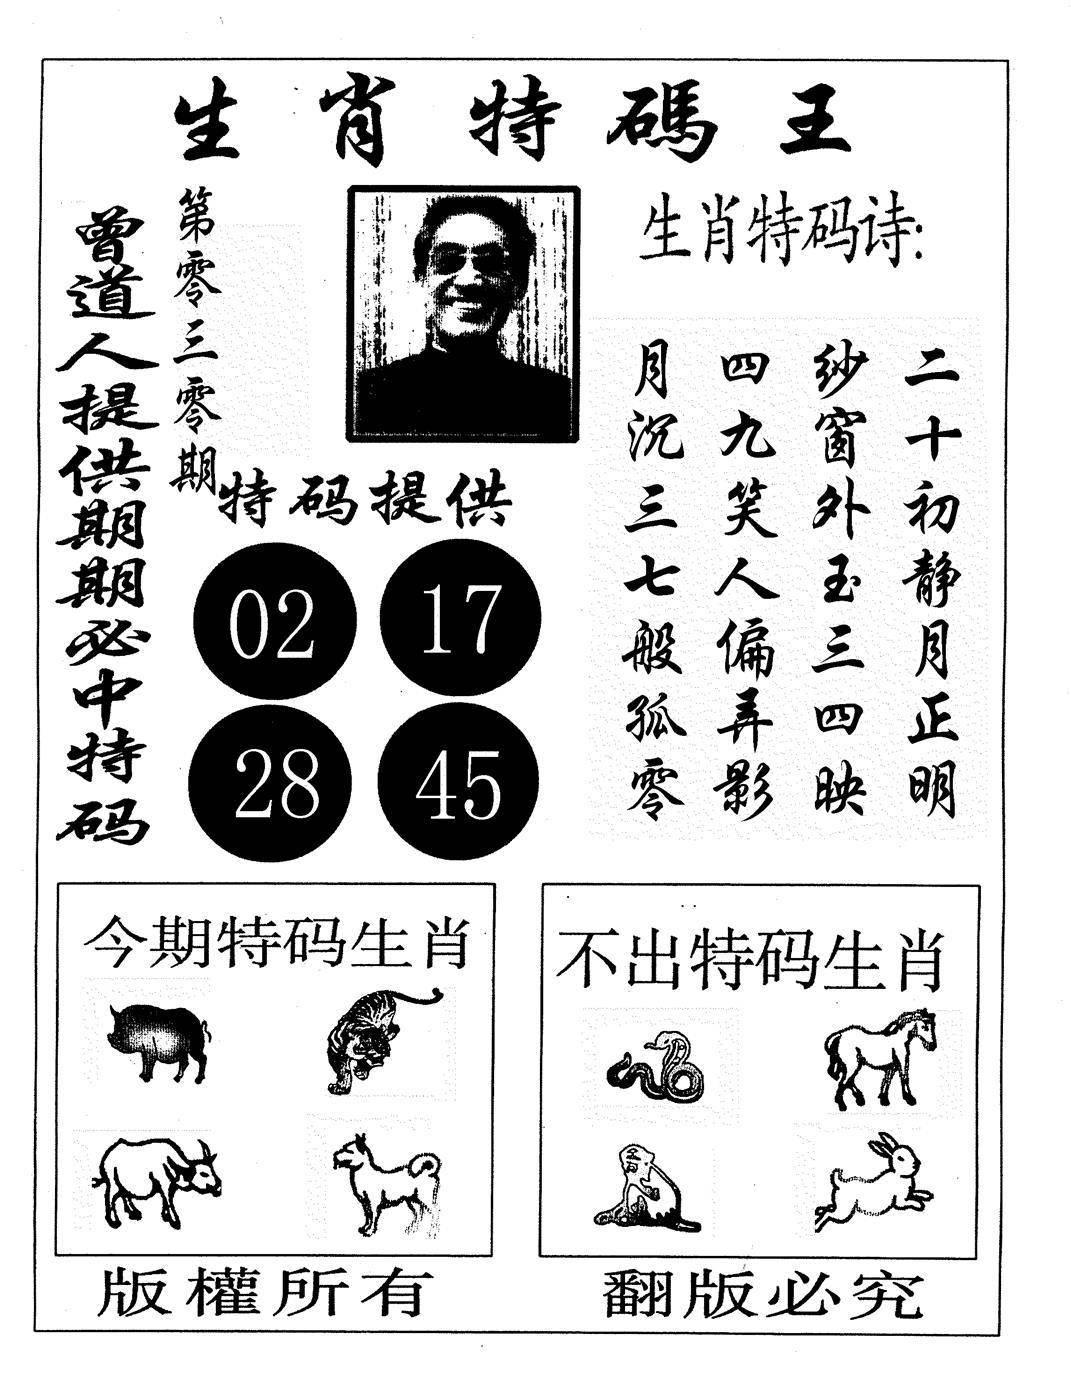 生肖特碼王
曾道人提供期期必中特码
第零三零期
生肖特码诗:
二十初静月正明
纱窗外玉三四映
四九笑人偏弄影
月沉三七般孤零
特码提供
02 17
28 45
今期特码生肖
不出特码生肖
版權所有
翻版必究